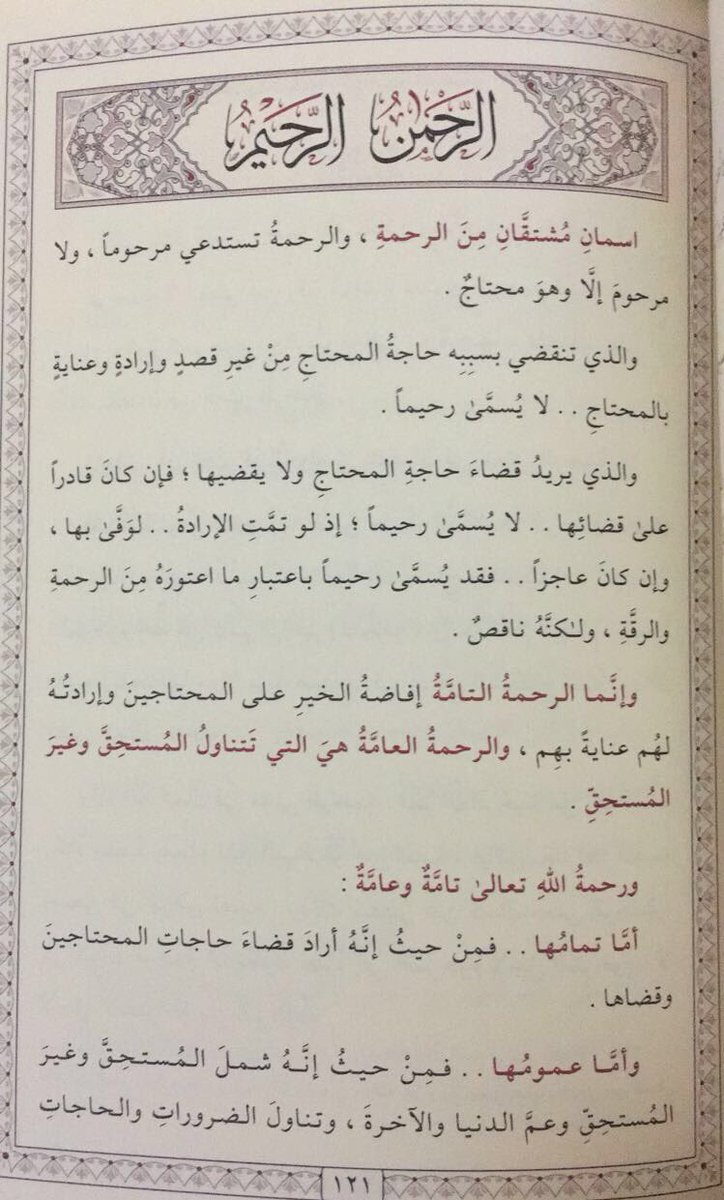 الرَّحْمٰنُ الرَّحِيْمُ
اسمانِ مُشتقَّانِ مِنَ الرحمةِ ، والرحمةُ تستدعي مرحوماً ، ولا
مرحومَ إلَّا وهوَ محتاجٌ .
والذي تنقضي بسببِه حاجةُ المحتاجِ مِنْ غيرِ قصدٍ وإرادةٍ وعنايةٍ
بالمحتاجِ . . لا يُسمَّىٰ رحيماً .
والذي يريدُ قضاءَ حاجةِ المحتاجِ ولا يقضيها ؛ فإن كانَ قادراً
علىٰ قضائِها . . لا يُسمَّىٰ رحيماً ؛ إذ لو تمَّتِ الإرادةُ . . لوَفَّىٰ بها ،
وإن كانَ عاجزاً . . فقد يُسمَّىٰ رحيماً باعتبارِ ما اعتورَهُ مِنَ الرحمةِ
والرقَّةِ ، ولـٰكنَّهُ ناقصٌ .
وإنَّما الرحمةُ التامَّةُ إفاضةُ الخيرِ على المحتاجينَ وإرادتُهُ
لهُم عنايةً بهِم ، والرحمةُ العامَّةُ هيَ التي تَتناولُ المُستحِقَّ وغيرَ
المُستحِقِّ .
ورحمةُ اللهِ تعالىٰ تامَّةٌ وعامَّةٌ :
أمَّا تمامُها . . فمِنْ حيثُ إنَّهُ أرادَ قضاءَ حاجاتِ المحتاجينَ
وقضاها .
وأمَّا عمومُها . . فمِنْ حيثُ إنَّهُ شملَ المُستحِقَّ وغيرَ
المُستحِقِّ وعمَّ الدنيا والآخرةَ ، وتناولَ الضروراتِ والحاجاتِ
١٢١